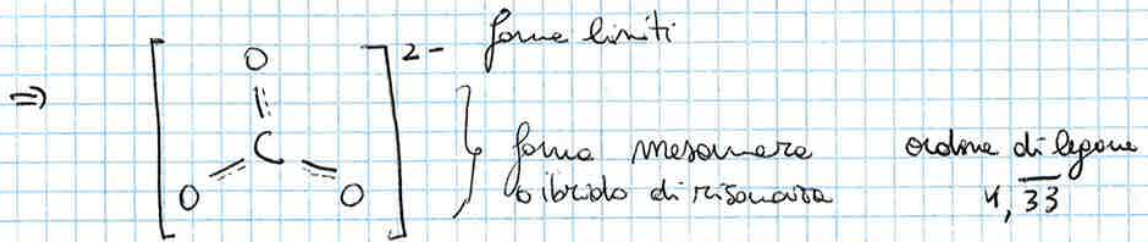 ⇒ [ O C O O ]2- forme limiti
forma mesomera
o ibrido di risonanza
ordine di legame
1,33